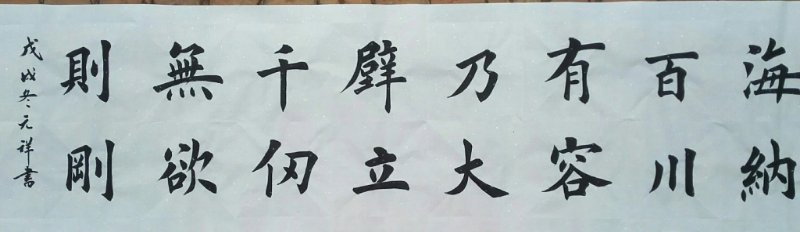 海納
百川
有容
乃大
壁立
千仞
無欲
則剛
戊戌冬元祥書